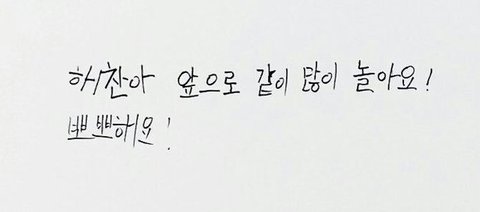 해찬아 앞으로 같이 많이 놀아요!
뽀뽀해요!